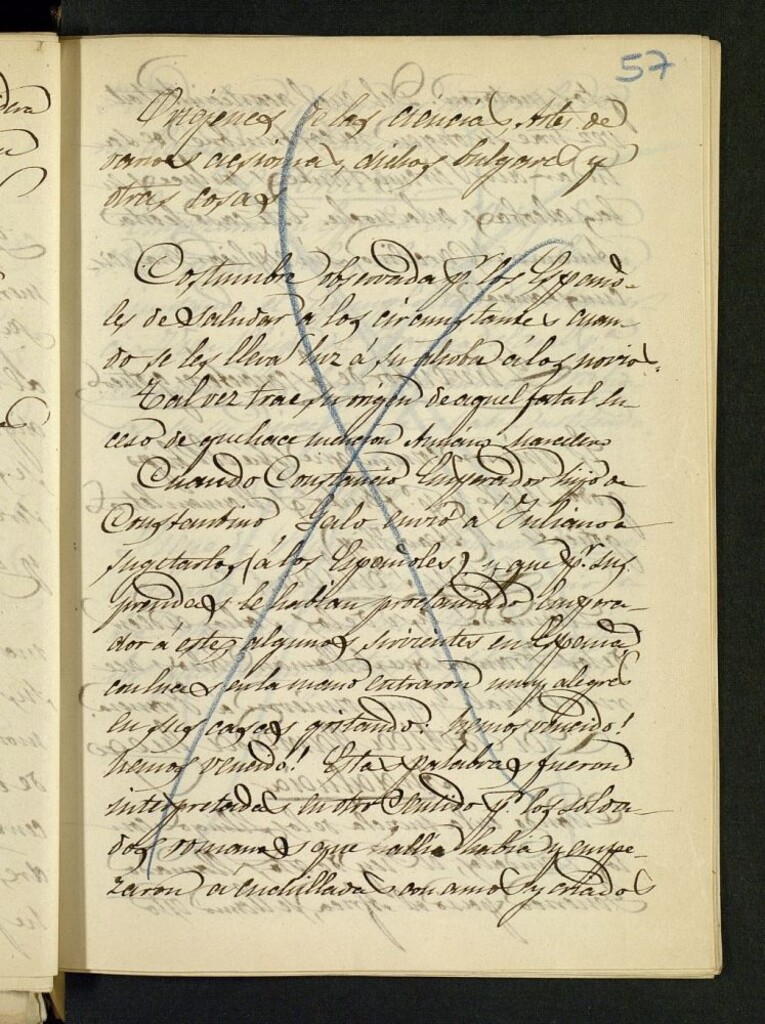 57
Origenes de las ciencias, Artes, de
varios acsiomas, dichos bulgares y
otras cosas
Costumbre observada pr. los Españo-
les de saludar á los circunstantes cuan-
do se les lleva luz á su alcoba ó á los novios.
Tal vez trae su origen de aquel fatal su
ceso de que hace mencion Amiano Marcelino
Cuando Constancio Emperador hijo de
Constantino Galo envió á Juliano a
sugetarlos (á los Españoles) y que pr. sus
prendas le habian proclamado Empera-
dor á este, algunos sirvientes en España
con luces en la mano entraron muy alegres
en sus casas gritando: hemos vencido!
hemos vencido! Estas palabras fueron
interpretadas en otro sentido pr. los solda-
dos romanos que allí habia y empe-
zaron a cuchilladas con amos y criados